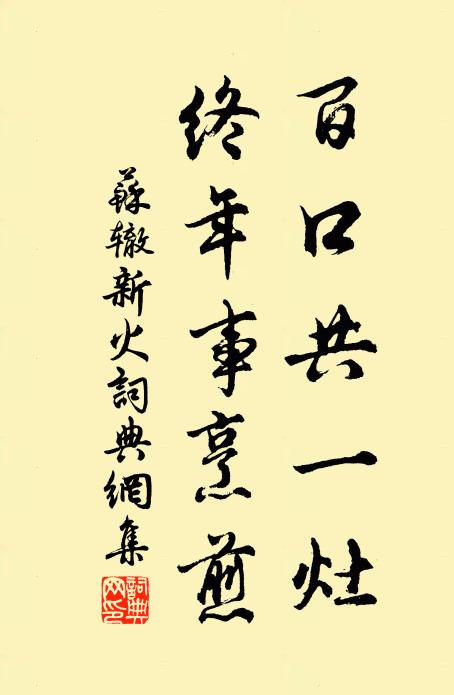 百口共一灶
终年事烹煎
蘇辙新火詞典網集
詞典网印